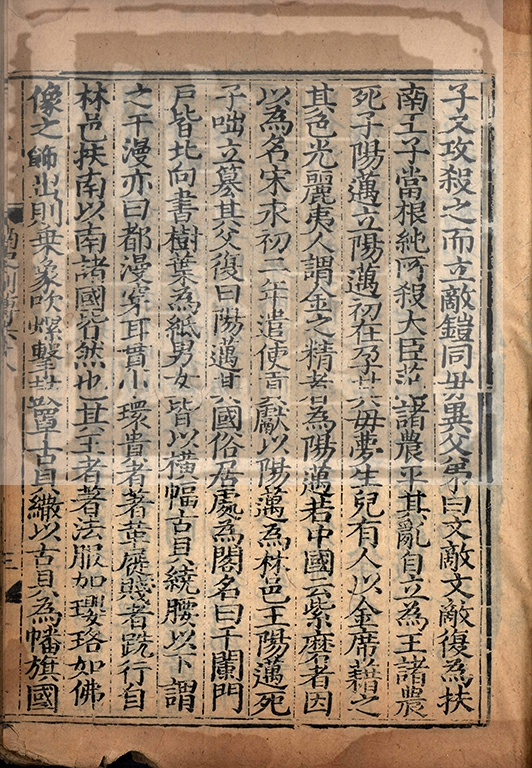 子又攻殺之而立敵鎧同毋異父弟曰文敵文敵復為扶
南王子當根純所殺大臣范諸農平其亂自立為王諸農
死子陽邁立陽邁初在孕其毋夢生兒有人以金席藉之
其色光麗夷人謂金之精者為陽邁若中國云紫磨者因
以為名宋永初二年遣使貢獻以陽邁為林邑王陽邁死
子咄立慕其父復曰陽邁其國俗居處為閣名曰干闌門
戸皆北向書樹葉為紙男女皆以橫幅古貝繞腰以下謂
之干漫亦曰都漫穿耳貫小環貴者著革屣賤者跣行自
林邑扶南以南諸國皆然也其王者著法服加瓔珞如佛
像之飾出則乗象吹螺擊鼓罩古貝繖以古貝為幡旗國